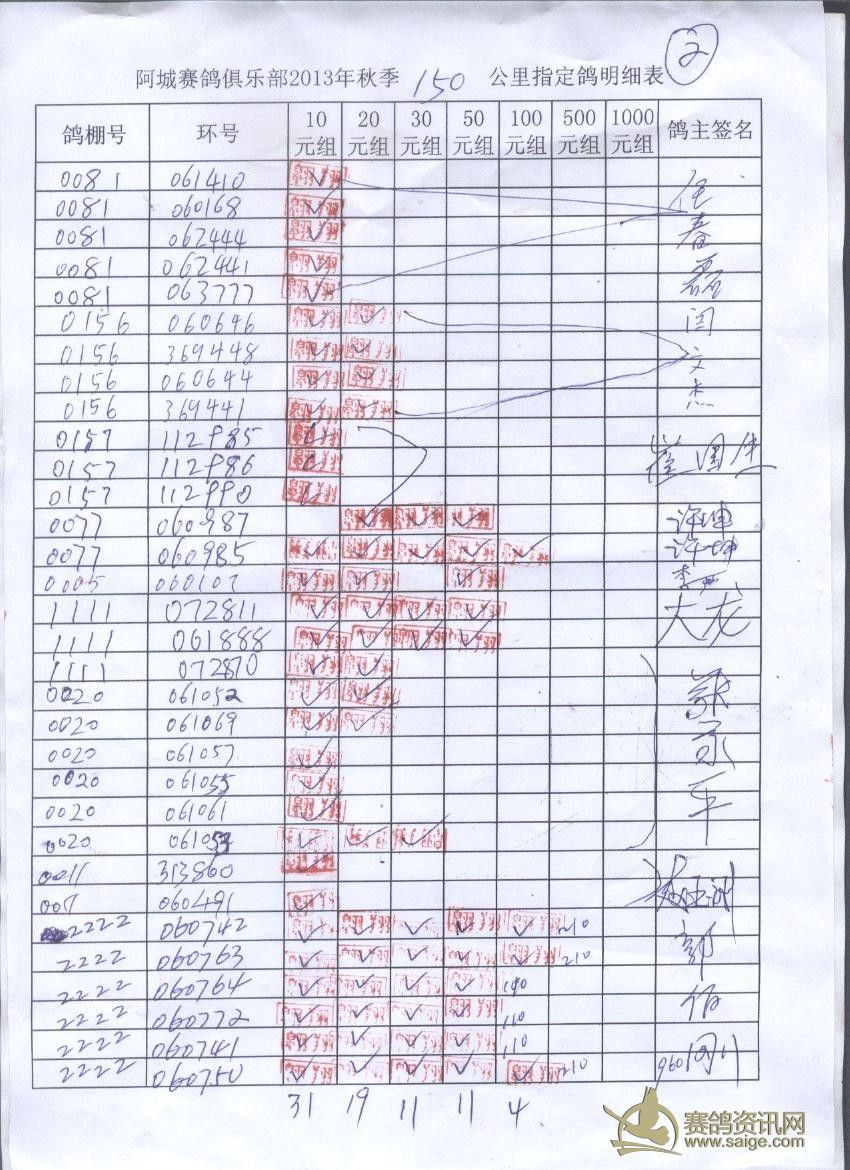 ②
阿城赛鸽俱乐部2013年秋季 150 公里指定鸽明细表
鸽棚号 环号 10元组 20元组 30元组 50元组 100元组 500元组 1000元组 鸽主签名
0081 061410 ✓
0081 060168 ✓
0081 062444 ✓
0081 062441 ✓
0081 063777 ✓
0156 060646 ✓ ✓
0156 369448 ✓ ✓
0156 060644 ✓ ✓
0156 369441 ✓ ✓
0157 112985 ✓
0157 112986 ✓
0157 112990 ✓
0077 060987 ✓ ✓ ✓
0077 060985 ✓ ✓ ✓ ✓ ✓
0005 060107 ✓ ✓ ✓
1111 072811 ✓ ✓ ✓ ✓ 大龙
1111 061888 ✓ ✓ ✓ ✓
1111 072810 ✓ ✓
0020 061052 ✓ ✓
0020 061069 ✓ ✓
0020 061057 ✓
0020 061055 ✓
0020 061061 ✓
0020 ✓ ✓ ✓
0011 313860 ✓
060491 ✓
2222 060742 ✓ ✓ ✓ ✓ ✓ 210
2222 060763 ✓ ✓ ✓ ✓ ✓ 210
2222 060764 ✓ ✓ ✓ ✓ 110
2222 060772 ✓ ✓ ✓ ✓ 110
2222 060741 ✓ ✓ ✓ ✓ 110
2222 060750 ✓ ✓ ✓ ✓ ✓ 210 960
31 19 11 11 4
赛鸽资讯网
www.saige.com